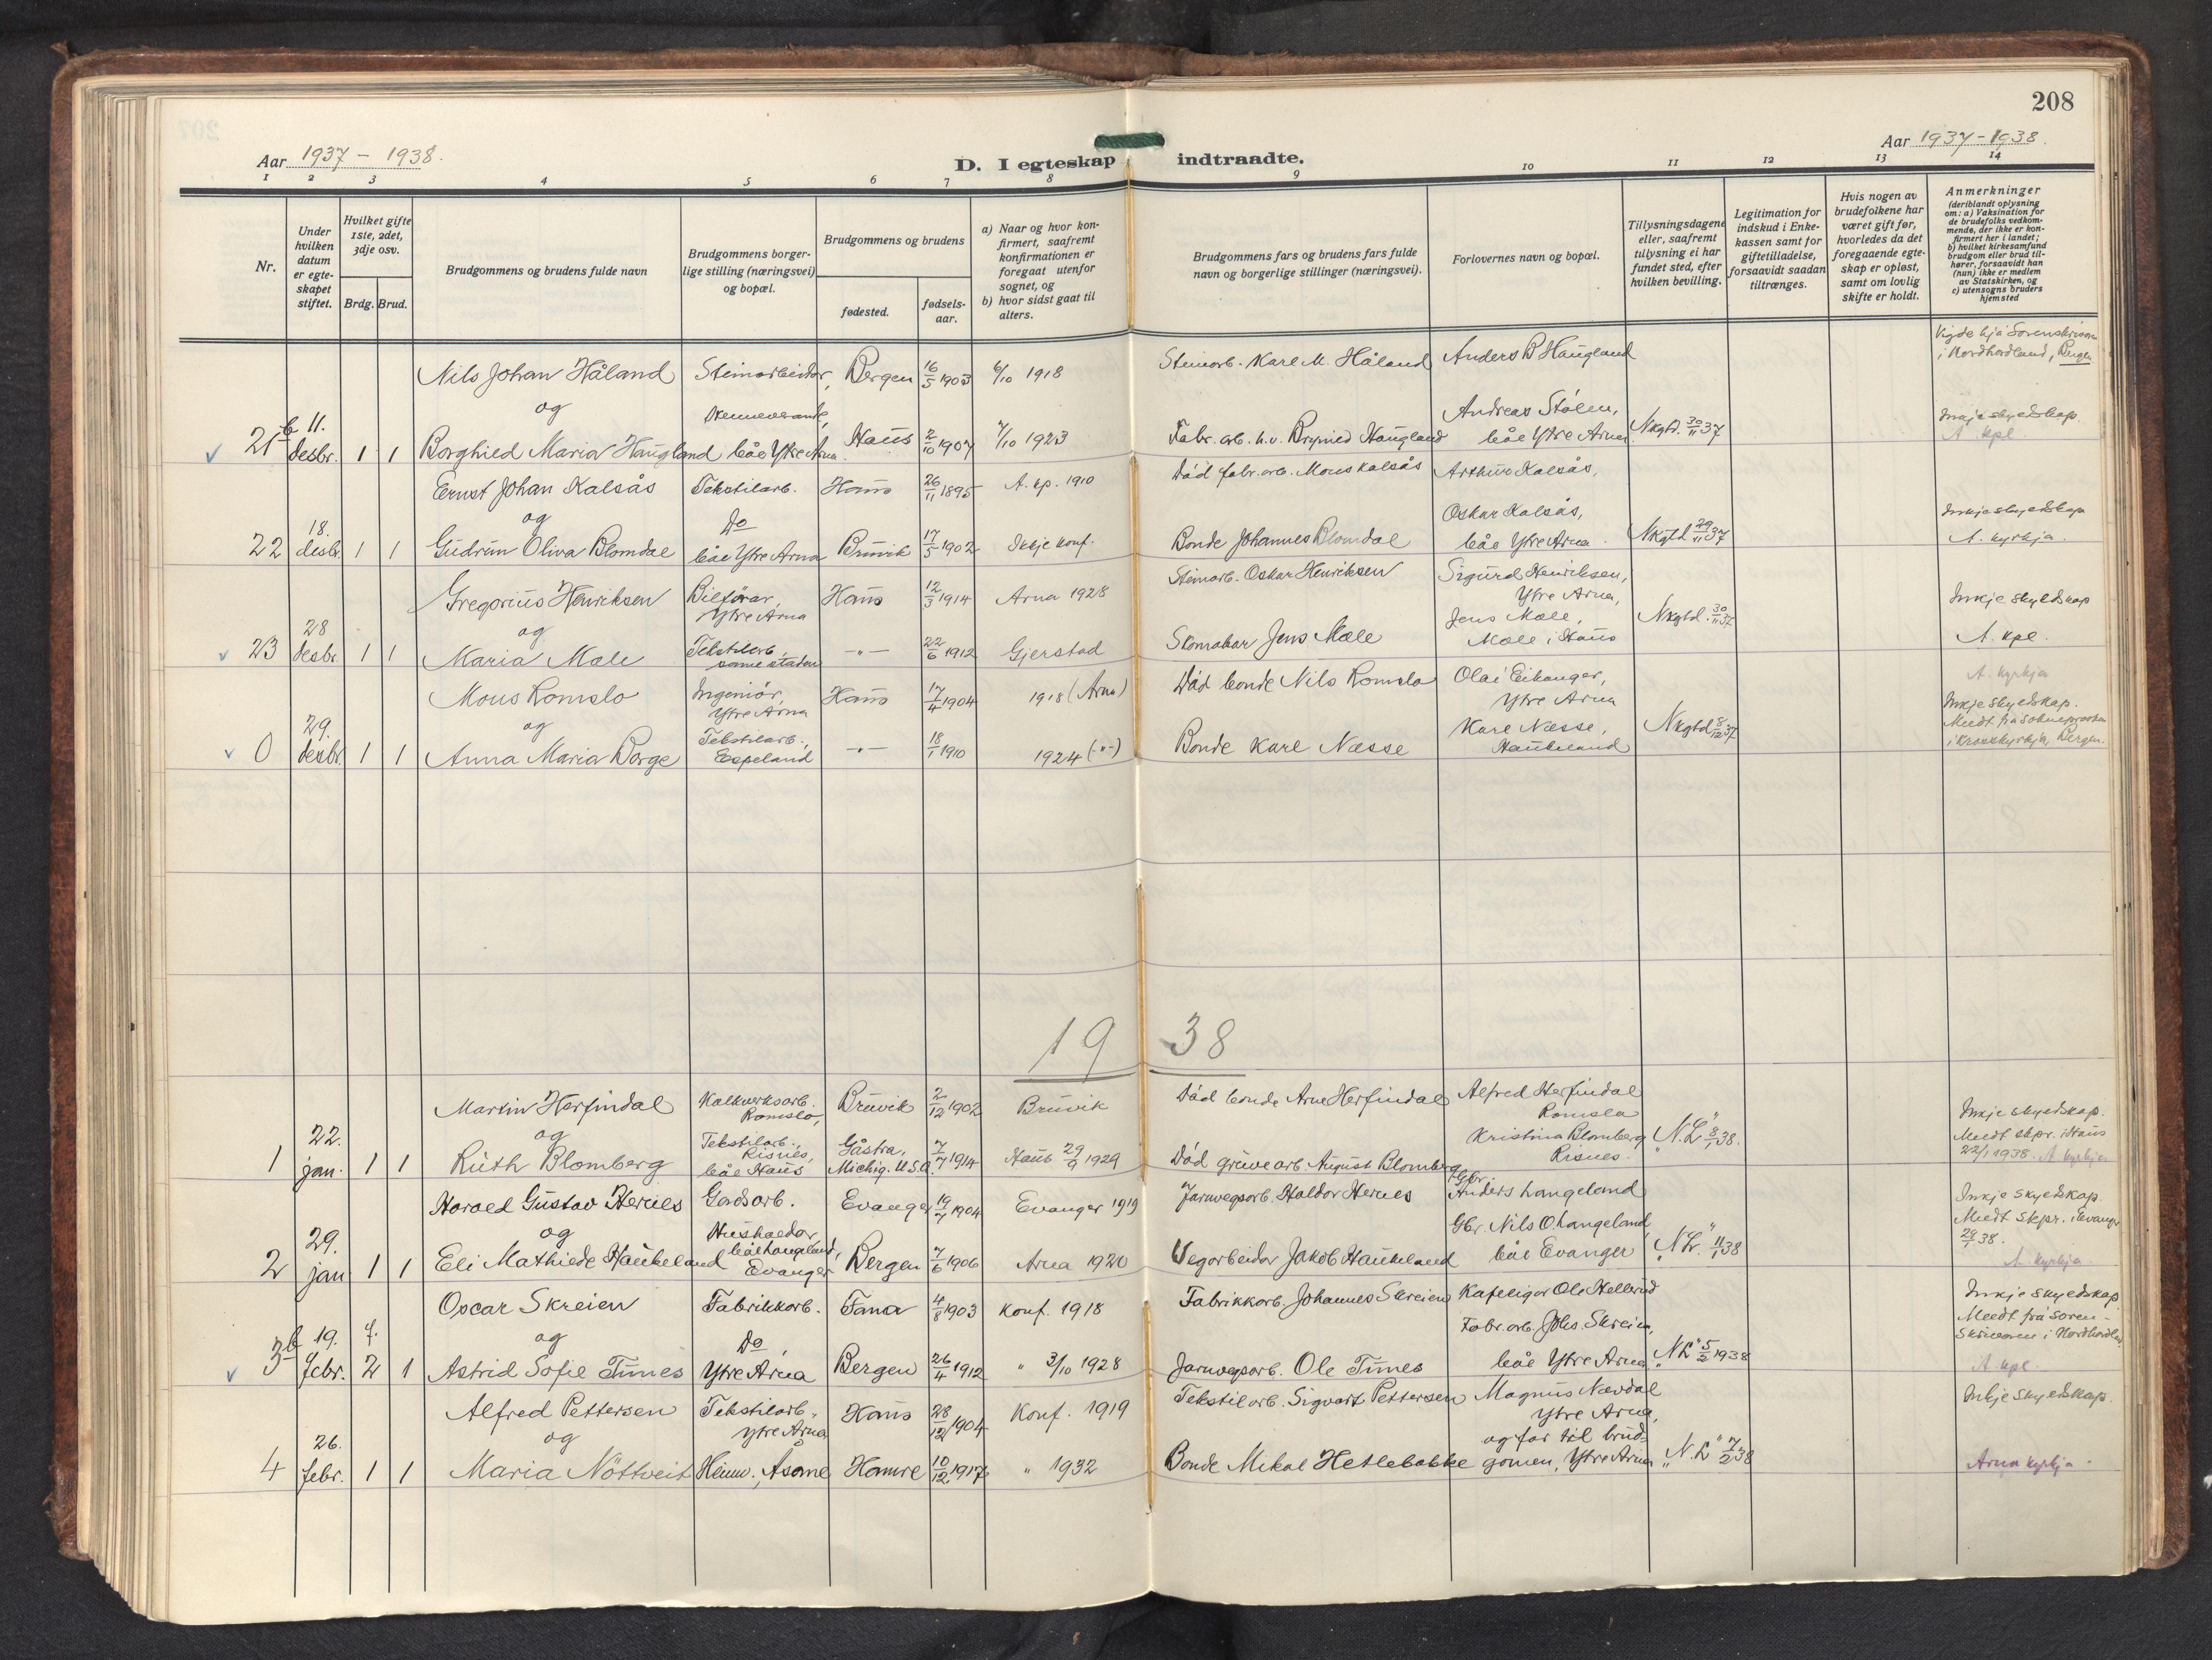 208
Aar 1937 - 1938.
D. I egteskap indtraadte.
Aar 1937 - 1938.
1 2 3 4 5 6 7 8 9 10 11 12 13 14
Nr.
Under hvilken datum er egte-skapet stiftet.
Hvilket gifte 1ste, 2det, 3dje osv.
Brdg. Brud.
Brudgommens og brudens fulde navn
Brudgommens borger-lige stilling (næringsvei) og bopæl.
Brudgommens og brudens
fødested.
fødsels-aar.
a) Naar og hvor kon-firmert, saafremt konfirmationen er foregaat utenfor sognet, og
b) hvor sidst gaat til alters.
Brudgommens fars og brudens fars fulde navn og borgerlige stillinger (næringsvei).
Forlovernes navn og bopæl.
Tillysningsdagene eller, saafremt tillysning ei har fundet sted, efter hvilken bevilling.
Legitimation for indskud i Enke-kassen samt for giftetilladelse, forsaavidt saadan tiltrænges.
Hvis nogen av brudefolkene har været gift før, hvorledes da det foregaaende egte-skap er opløst, samt om lovlig skifte er holdt.
Anmerkninger
(deriblandt oplysning om: a) Vaksination for de brudefolks vedkom-mende, der ikke er kon-firmert her i landet; b) hvilket kirkesamfund brudgom eller brud til-hører, forsaavidt han (hun) ikke er medlem av Statskirken, og c) utensogns bruders hjemsted
Vigde hjå Sorenskrivaren
i Nordhordland, Bergen
Nils Johan Håland Steinarbeidar, Bergen 16/5 1903 6/10 1918 Steinarb. Karl M. Håland Anders B Haugland
og
21b 11. desbr. 1 1 Borghild Maria Haugland båe Ytre Arna. Haus 2/10 1907 7/10 1923 Fabr. arb. h.v. Brynild Haugland Andreas Stølen, båe Ytre Arna Nkgtd. 30/11 37 Inkje skyldskap. A. kpl
Ernst Johan Kalsås Tekstilarb. Haus 26/11 1895 A. kp. 1910 Død fabr. arb. Mons Kalsås Arthur Kalsås,
og Do
22 18. desbr. 1 1 Gudrun Oliva Blomdal båe Ytre Arna Bruvik 17/5 1902 Ikkje konf. Bonde Johannes Blomdal Oskar Kalsås, båe Ytre Arna Nkgtd 29/11 37 Inkje skyldskap A. kyrkja.
Gregorius Henriksen Bilførar, Ytre Arna Haus 12/3 1914 Arna 1928 Steinarb. Oskar Henriksen Sigurd Henriksen, Ytre Arna,
og
23 28 desbr. 1 1 Maria Mæle Tekstilarb, same staden -"- 22/6 1912 Gjerstad Skomakar Jens Mæle Jens Mæle, Mæle i Haus Nkgtd. 30/11 37 Inkje skyldskap A. kpl.
Mons Romslo Ingeniør, Ytre Arna Haus 17/4 1904 1918 (Arna) Død bonde Nils Romslo Olai Eikanger, Ytre Arna A. kyrkja
og
0 29. desbr. 1 1 Anna Maria Borge Tekstilarb., Espeland -"- 18/1 1910 1924 (-"-) Bonde Karl Næsse Karl Næsse, Haukeland Nkgtd 8/12 37 Inkje skyldskap. Meldt frå Sokneprosten i Krosskyrkja, Bergen.
19 38
Martin Herfindal Kalkverksarb. Romslo, Bruvik 2/12 1902 Bruvik Død bonde Arne Herfindal Alfred Herfindal Romslo
og
1 22. jan. 1 1 Ruth Blomberg Tekstilarb., Risnes, båe Haus Gåstra, Michig. U.S.A. 7/7 1914 Haus 29/9 1929 Død gruvearb. August Blomberg Kristina Blomberg Risnes. N.L. 8/1 38. Inkje skyldskap. Meldt skpr. i Haus 22/1 1938. A kyrkja
Harald Gustav Hernes Gardsarb. Evanger 19/7 1904 Evanger 1919 Jarnvegsarb. Haldor Hernes Gbr. Anders Langeland
og
2 29. jan 1 1 Eli Mathilde Haukeland Hushaldar, båe Langeland, Evanger Bergen 7/6 1906 Arna 1920 Vegarbeidar Jakob Haukeland Gbr. Nils O. Langeland, båe Evanger N L. 11/1 38 Inkje skyldskap. Meldt skpr. i Evanger 29/1 38. A. kyrkja.
Oscar Skreien Fabrikkarb. Fana 4/8 1903 Konf. 1918 Fabrikkarb. Johannes Skreien
og Do
3b 19. febr. 2 1 Astrid Sofie Tunes Ytre Arna Bergen 26/4 1912 " 3/10 1928 Jarnvegsarb. Ole Tunes Fabr. arb. Johs. Skreien, båe Ytre Arna N L 5/2 1938 Inkje skyldskap Meldt frå Soren-skrivaren i Nordhordland A kpl.
Alfred Pettersen Tekstilarb., Ytre Arna Haus 28/12 1904 Konf. 1919 Tekstilarb. Sigvart Pettersen Magnus Nævdal Ytre Arna, Inkje skyldskap.
og
4 26. febr. 1 1 Maria Nöttveit Heimv., Åsane Hamre 10/12 1917 " 1932 Bonde Mikal Hetlebakke og far til brud-gomen, Ytre Arna N. L. 7/2 38 Arna kyrkja.